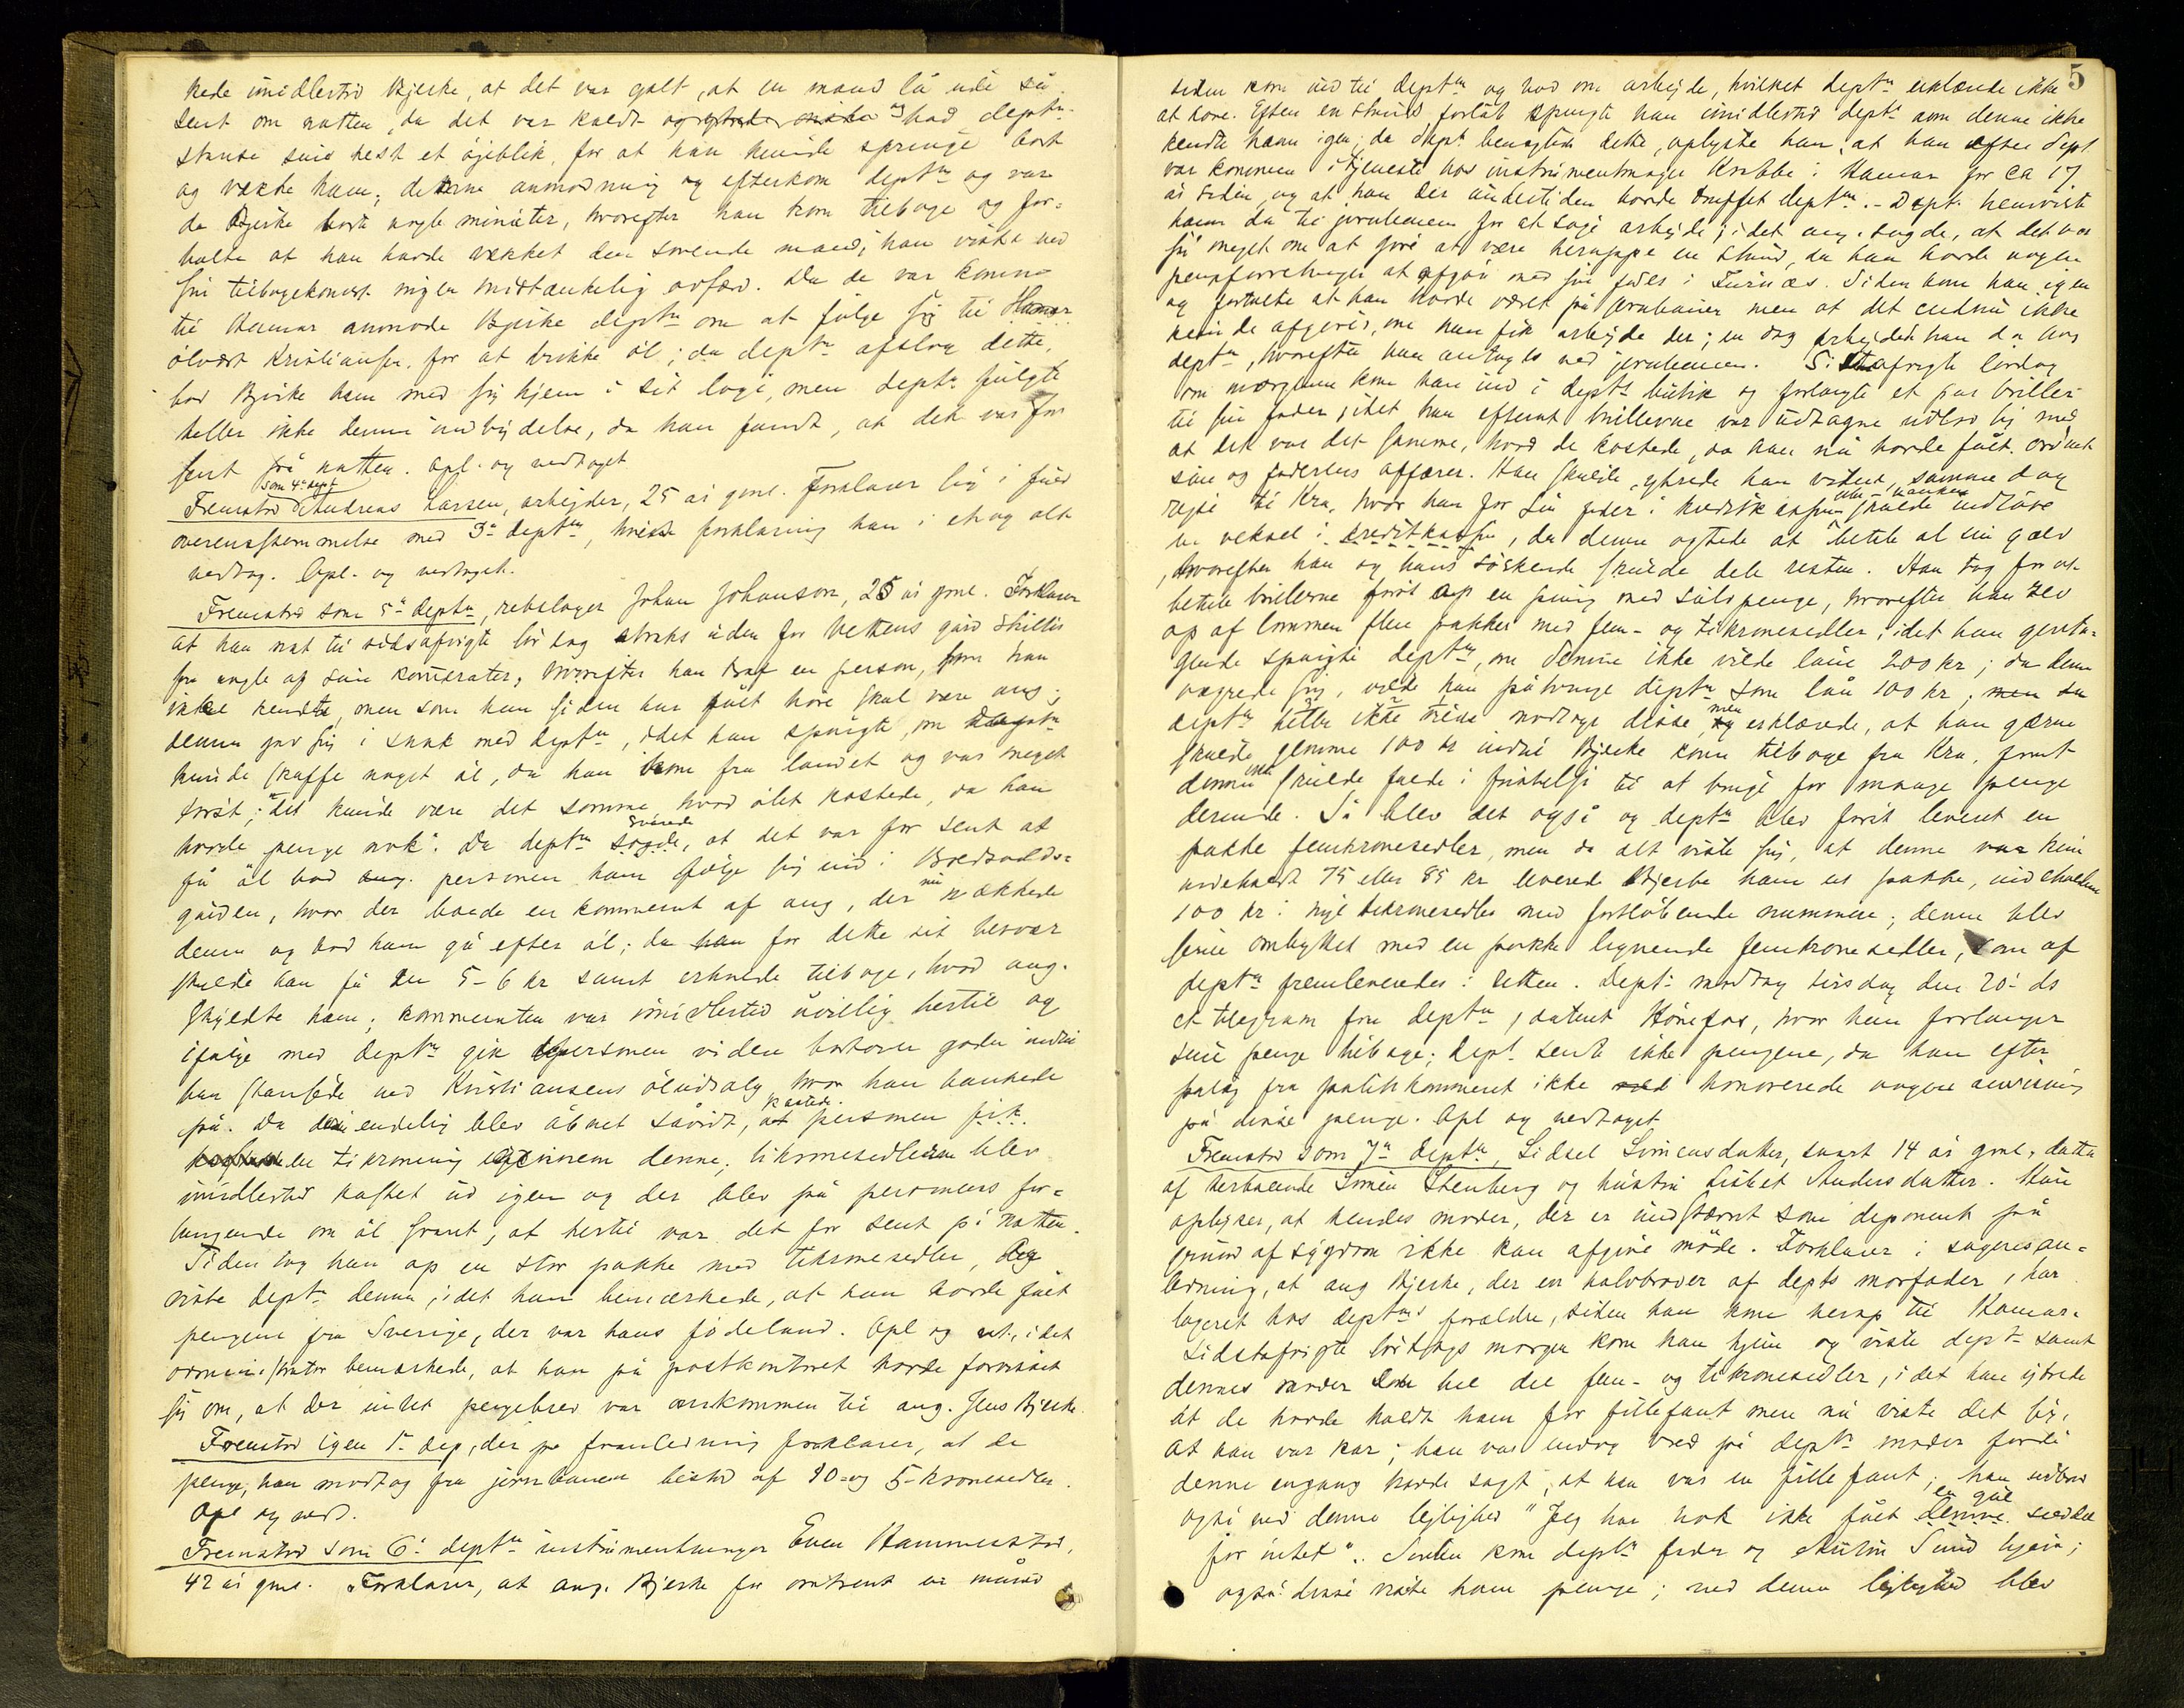 kede imidlertid Bjerke, at det var galt, at en mand lå ude så
sent om natten, da det var koldt og bad deptn
standse sin hest et öjeblik, for at han kunde springe bort
og vække ham; denne anmodning og efterkom deptn og var
da Bjerke borte nogle minuter, hvorefter han kom tilbage og for-
talte at han havde vækket den sovende mand; han viste ved
sin tilbagekomst ingen mistænkelig adfærd. Da de var komne
til Hamar anmode Bjerke deptn om at fölge sig til Hamar
ölvært Kristiansen, for at drikke öl; da deptn afslog dette,
bad Bjerke ham med sig hjem i sit logi, men deptn fulgte
heller ikke denne indbydelse, da han fandt, at det var for
sent på natten. Opl. og vedtaget
Fremstod som 4de dept Andreas Larsen, arbejder, 25 år gml. Forklarer sig i fuld
overensstemmelse med 3die deptn, hvis forklaring han i et og alt
vedtog. Opl. og vedtaget.
Fremstod som 5te deptn, rebslager Johan Johanson, 25 år gml. Forklarer
at han nat til sidstafvigte lördag straks uden for Vettens gård skiltes
fra nogle af sine kamerater, hvorefter han traf en person, som han
ikke kendte, men som han siden har fået höre skal være ang.;
denne gav sig i snak med deptn, idet han spurgte, om deptn
kunde skaffe noget öl, da han kom fra landet og var meget
törst; "det kunde være det samme, hvad ölet kostede, da han
havde penge nok". Da deptn svarede, at det var for sent at
få öl bad personen ham fölge sig ind i Bredvolds-
gården, hvor der boede en kommerent af ang, der nu vækkede
denne og bad ham gå efter öl; for dette sit besvær
skulde han få en 5-6 kr samt erholde tilbage, hvad ang.
skyldte ham; kommerenten var imidlertid uvillig hertil og
ifölge med deptn gik personen videre bortover gaden indtil
han standsede ved Kristiansens öludsalg, hvor han bankede
på. Da der endelig blev åbnet såvidt, kastede personen
en tikroning igjennem denne; tikronesedlen blev
imidlertid kastet ud igen og der blev på personens for-
langende om öl svaret, at hertil var det for sent på natten.
Siden tog han op en stor pakke med tikronesedler, og
viste deptn denne, idet han bemærkede, at han havde fået
pengene fra Sverige, der var hans födeland. Opl og vet., idet
administrator bemærkede, at han på postkontoret havde forvisset
sig om, at der intet pengebrev var ankommen til ang. Jens Bjerke.
Fremstod igen 1ste dep, der på foranledning forklarer, at de
penge, han modtog fra jernbanen bestod af 10- og 5-kronesedler.
Opl og ved.
Fremstod som 6te deptn instrumentmager Even Hammerstad,
42 år gml. Forklarer, at ang. Bjerke for omtrent en måned

5
siden kom ind til deptn og bad om arbejde, hvilket deptn erklærede ikke
at have. Efter en stunds forlöb spurgte han imidlertid deptn om denne ikke
kendte ham igen; da dept. benegtede dette, oplyste han, at han efter dept.
var kommen i tjeneste hos instrumentmager Krabbe i Hamar for ca 17
år siden og at han der undertiden havde truffet deptn. - Dept. henviste
ham da til jernbanen for at söge arbejde; idet ang. sagde, at det var
så meget om at göre at være heroppe en stund, da han havde nogen
pengeforretninger at afgöre med sin fader i Furnæs. Siden kom han igen
og fortalte at han havde været på jernbanen men at det endnu ikke
kunde afgöres, om han fik arbejde der; en dag arbejdede han da hos
deptn, hvorefter han antoges ved jernbanen. Sistafvigte lördag
om morgenen kom han ind i deptn butik og forlangte et par briller
til sin fader, idet han efterat brillerne var udtagne udlod sig med
at det var det samme, hvad de kostede, da han nu havde fået ordnet
sine og faderens affærer. Han skulde, ytrede han videre, samme dag
rejse til Kra, hvor han for sin fader i skulde indlöse
en veksel i kreditkassen, da denne agtede at betale al sin gæld
, hvorefter han og hans söskende skulde dele resten. Han tog for at
betale brillerne först op en pung med sölvpenge, hvorefter han drev
op af lommen flere pakker med fem- og tikronesedler, idet han genta-
gende spurgte deptn, om denne ikke vilde låne 200 kr; da denne
vægrede sig, vilde han påtvinge deptn som lån 100 kr;
deptn heller ikke vilde modtage disse, men erklærede, at han gærne
skulde gemme 100 kr indtil Bjerke kom tilbage fra Kra, forat
denne ikke skulde falde i fristelse til at bruge for mange penge
derinde. Så blev det også og deptn blev först leveret en
pakke femkronesedler, men da det viste sig, at denne kun
indeholdt 75 eller 85 kr leverede Bjerke ham en pakke, indeholdende
100 kr i nye tikronesedler med fortlöbende nummere; denne blev
senere ombyttet med en pakke lignende femkronesedler, som af
deptn fremleveredes i retten. Deptn modtog tirsdag den 20de ds
et telegram fra deptn, dateret Hönefos, hvor han forlanger
sine penge tilbage; dept. sendte ikke pengene, da han efter
pålæg fra politikammeret ikke honorerede nogen anvisning
på disse penge. Opl og vedtaget.
Fremstod som 7de deptn, Lidsel Simensdatter, snart 14 år gml., datter
af herboende Simen Stenberg og hustru Lisbet Andersdatter. Hun
oplyser, at hendes moder, der er indstævnt som deponent på
grund af sygdom ikke kan afgive möde. Forklarer i sagens an-
ledning, at ang Bjerke, der er halvbroder af depts morfader, har
logeret hos deptns forældre, siden han kom herop til Hamar.
Sidstafvigte lördags morgen kom han hjem og viste deptn samt
dennes moder en hel del fem- og tikronesedler, idet han ytrede
at de havde holdt ham for fillefant men nu viste det sig,
at han var kar; han var endog vred på deptn moder fordi
denne engang havde sagt, at han var en fillefant; han udbröd
også ved denne lejlighed "Jeg har nok ikke fået en gul seddel
for intet". Senere kom deptn fader og Sund hjem;
også disse viste ham penge; ved denne lejlighed blev